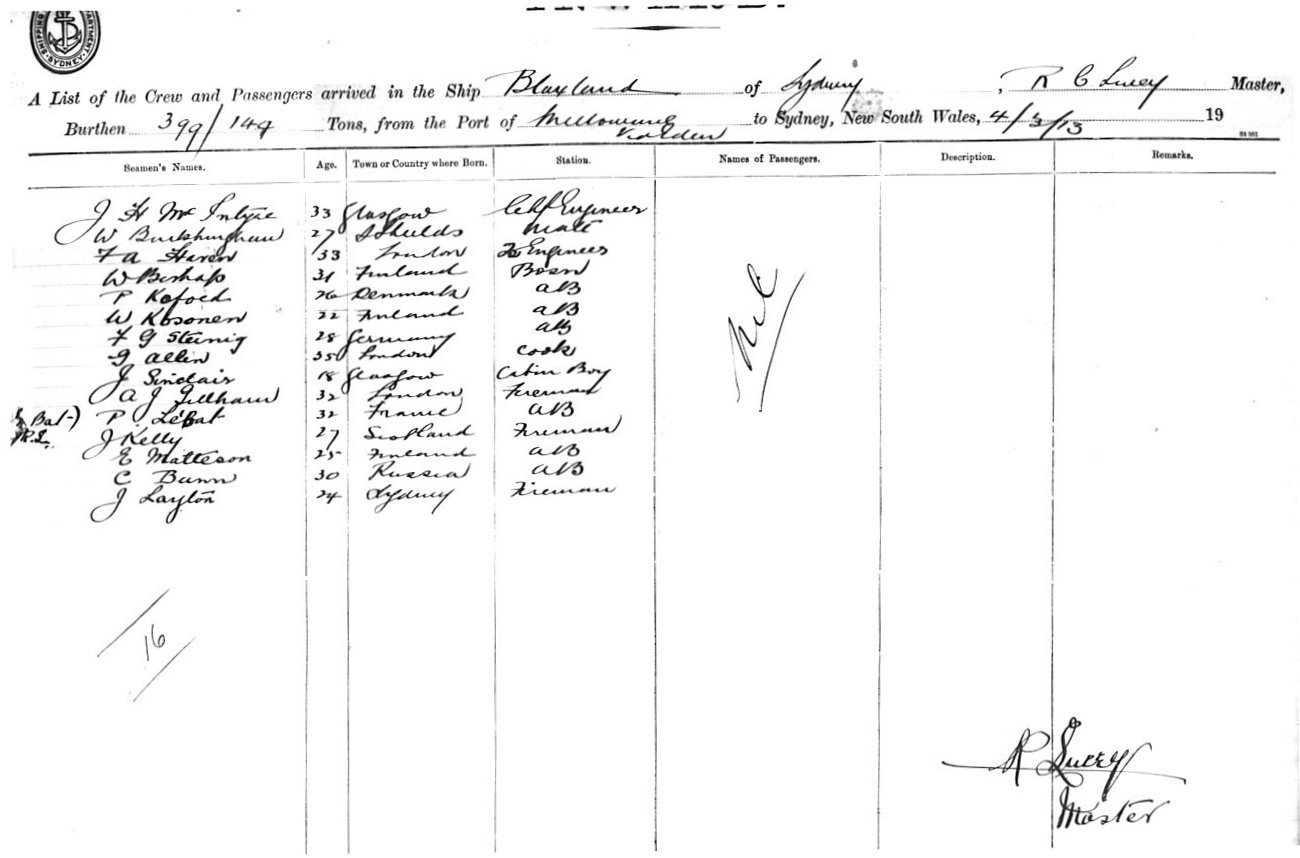 SHIPPING DEPARTMENT SYDNEY
A List of the Crew and Passengers arrived in the Ship Blaxland of Sydney, R C Lucey Master,
Burthen 399/149 Tons, from the Port of Melbourne to Sydney, New South Wales, 4/3/13 19
Seamen's Names. Age. Town or Country where Born. Station. Names of Passengers. Description. Remarks.
J H McIntyre 33 Glasgow Chf Engineer
W Buckhingham 27 S Shields Mate
F A Haren 33 London 2 Engineer
W Bishap 31 Finland Bosn
P Kofoed 26 Denmark AB
W Kosonen 22 Finland AB
F G Steinig 28 Germany AB
G Allin 35 London Cook
J Sinclair 18 Glasgow Cabin Boy
A J Gillham 32 London Fireman
Bat-) P. LeBat 32 France AB
J Kelly 27 Scotland Fireman
E Matteson 25 Finland AB
C Bunn 30 Russia AB
J Layton 24 Sydney Fireman
Nil
16
R Lucey
Master